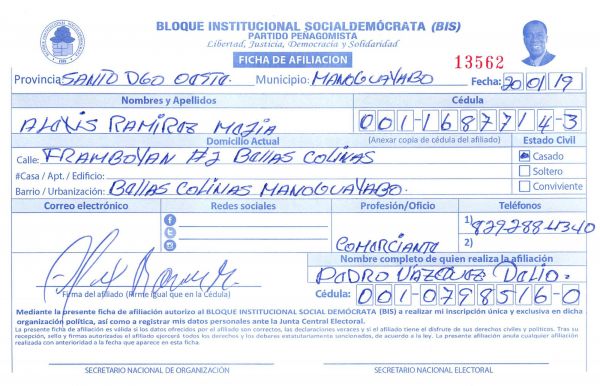 BLOQUE INSTITUCIONAL SOCIALDEMÓCRATA (BIS)
PARTIDO PEÑAGOMISTA
Libertad, Justicia, Democracia y Solidaridad
FICHA DE AFILIACION
13562
Provincia: SANTO DGO OESTE. Municipio: MANOGUAYABO Fecha: 20/01/19
Nombres y Apellidos Cédula
ALEXIS RAMIREZ MEJIA 001-1687714-3
(Anexar copia de cédula del afiliado)
Domicilio Actual Estado Civil
Calle: FRAMBOYAN #2 BELLAS COLINAS Casado
#Casa / Apt. / Edificio: Soltero
Barrio / Urbanización: BELLAS COLINAS MANOGUAYABO. Conviviente
Correo electrónico Redes sociales Profesión/Oficio Teléfonos
1) 8292884340
COMERCIANTE 2)
Nombre completo de quien realiza la afiliación
PEDRO VÁZQUEZ DELIO.
Firma del afiliado (Firme igual que en la Cédula) Cédula: 001-0798516-0
Mediante la presente ficha de afiliación autorizo al BLOQUE INSTITUCIONAL SOCIAL DEMÓCRATA (BIS) a realizar mi inscripción única y exclusiva en dicha
organización política, así como a registrar mis datos personales ante la Junta Central Electoral.
La presente ficha de afiliación es válida si los datos ofrecidos por el afiliado son correctos, las declaraciones veraces y si el afiliado tiene el disfrute de sus derechos civiles y políticos. Tras su
recepción, sello y firmas autorizadas el afiliado ejercerá todos los derechos y los deberes estatutariamente sancionados, de acuerdo a la ley. La presente afiliación anula cualquier afiliación
realizada con anterioridad a la fecha que aparece en esta ficha.
SECRETARIO NACIONAL DE ORGANIZACIÓN SECRETARIO NACIONAL ELECTORAL